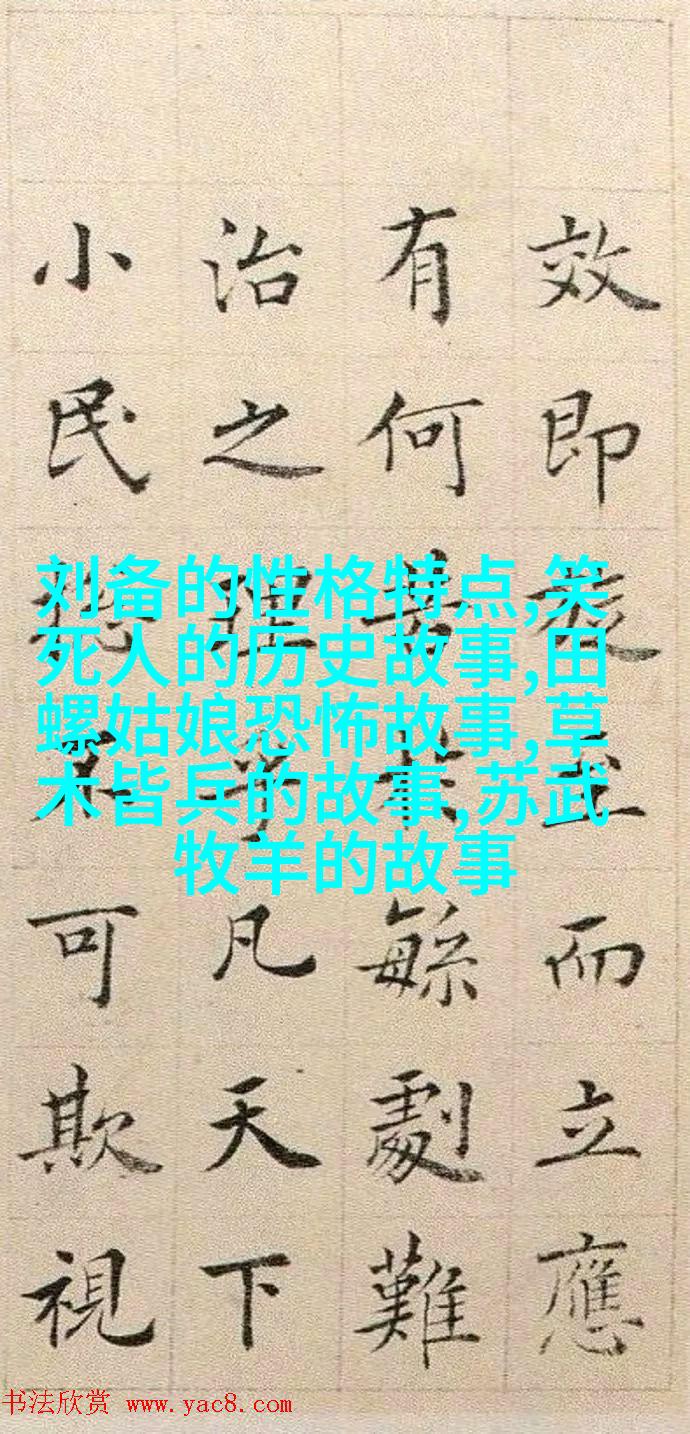 效即而立應
有何緐劇難
治之理乎凡天下
小民可欺視
刘备的性格特点,笑
死人的历史故事,田
螺姑娘恐怖故事,草
木皆兵的故事,苏武
牧羊的故事
书法欣赏 www.yac8.com